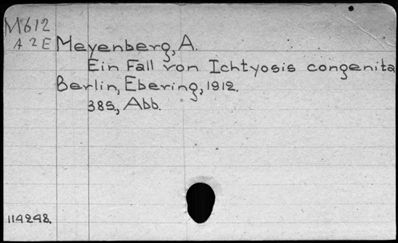 M612
A2E
Meyenberg, A.
Ein Fall von Ichtyosis congenita
Berlin, Ebering, 1912.
38s, Abb.
114248.